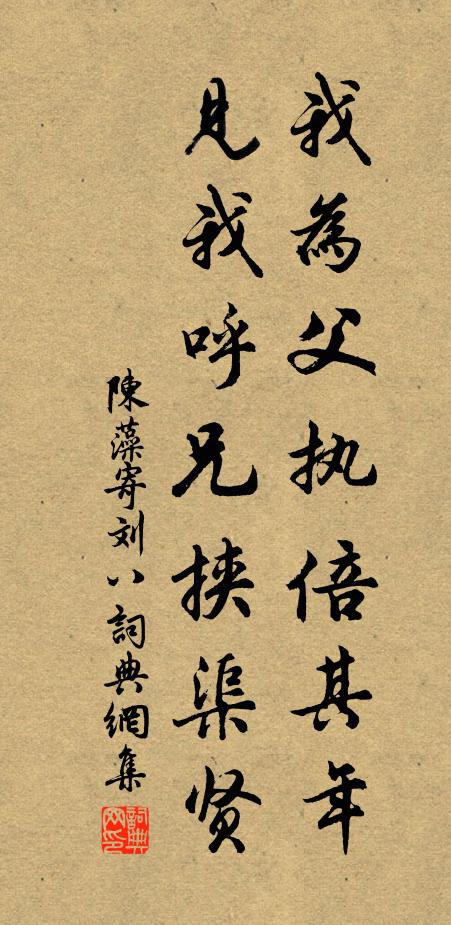 我為父执倍其年
見我呼兄挟渠贤
陳藻寄刘八詞典網集
詞典网印